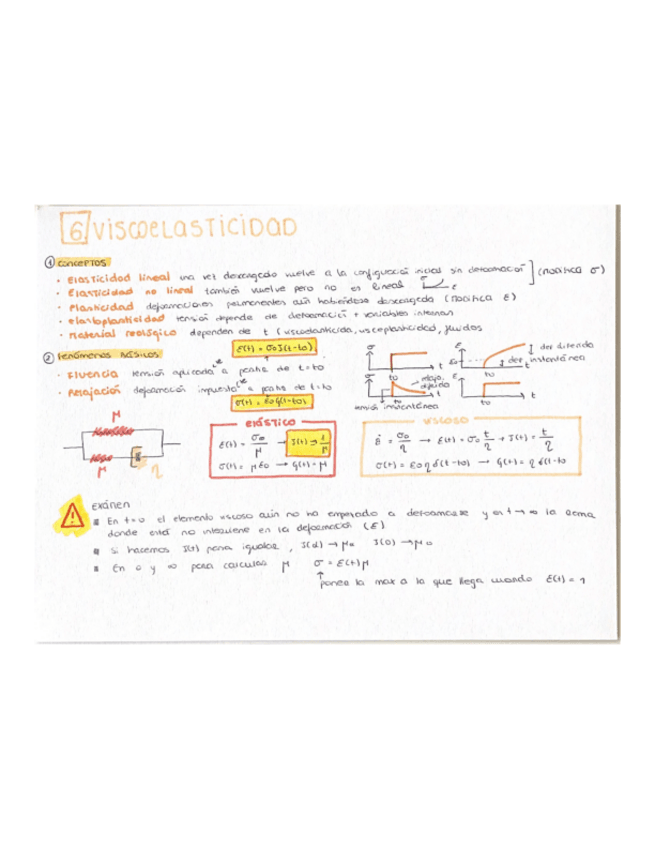 6 VISCOELASTICIDAD
① CONCEPTOS
· Elasticidad lineal una vez descargado vuelve a la configuración inicial sin deformación
· Elasticidad no lineal también vuelve pero no es lineal σ ε
(nocífica σ)
· Plasticidad deformaciones permanentes aún habiéndose descargado (nocífica ε)
· elastoplasticidad tensión depende de deformación + variables internas
· Material reológico dependen de t (viscoelasticidad, viscoplasticidad, fluidos
② FENÓMENOS BÁSICOS
ε(t) = σ₀J(t-t₀)
· Fluencia tensión aplicada a partir de t=t₀
· Relajación deformación impuesta a partir de t=t₀
σ(t) = ε₀G(t-t₀)
σ t₀ t
ε t₀ t
def diferida
def instantánea
σ t₀ t
relaj. diferida
tensión instantánea
ε t₀ t
μ
μ η
ELÁSTICO
ε(t) = σ₀/μ → J(t) = 1/μ
σ(t) = με₀ → G(t) = μ
VISCOSO
ε̇ = σ₀/η → ε(t) = σ₀ t/η → J(t) = t/η
σ(t) = ε₀ηδ(t-t₀) → G(t) = ηδ(t-t₀
EXÁMEN
En t=0 el elemento viscoso aún no ha empezado a deformarse y en t→∞ la rama
donde está no interviene en la deformación (ε)
si hacemos J(t) para igualar, J(∞) → μ∞ J(0) → μ₀
En 0 y ∞ para calcular μ σ = ε(t)μ
ponea la max a la que llega cuando ε(t) = 1